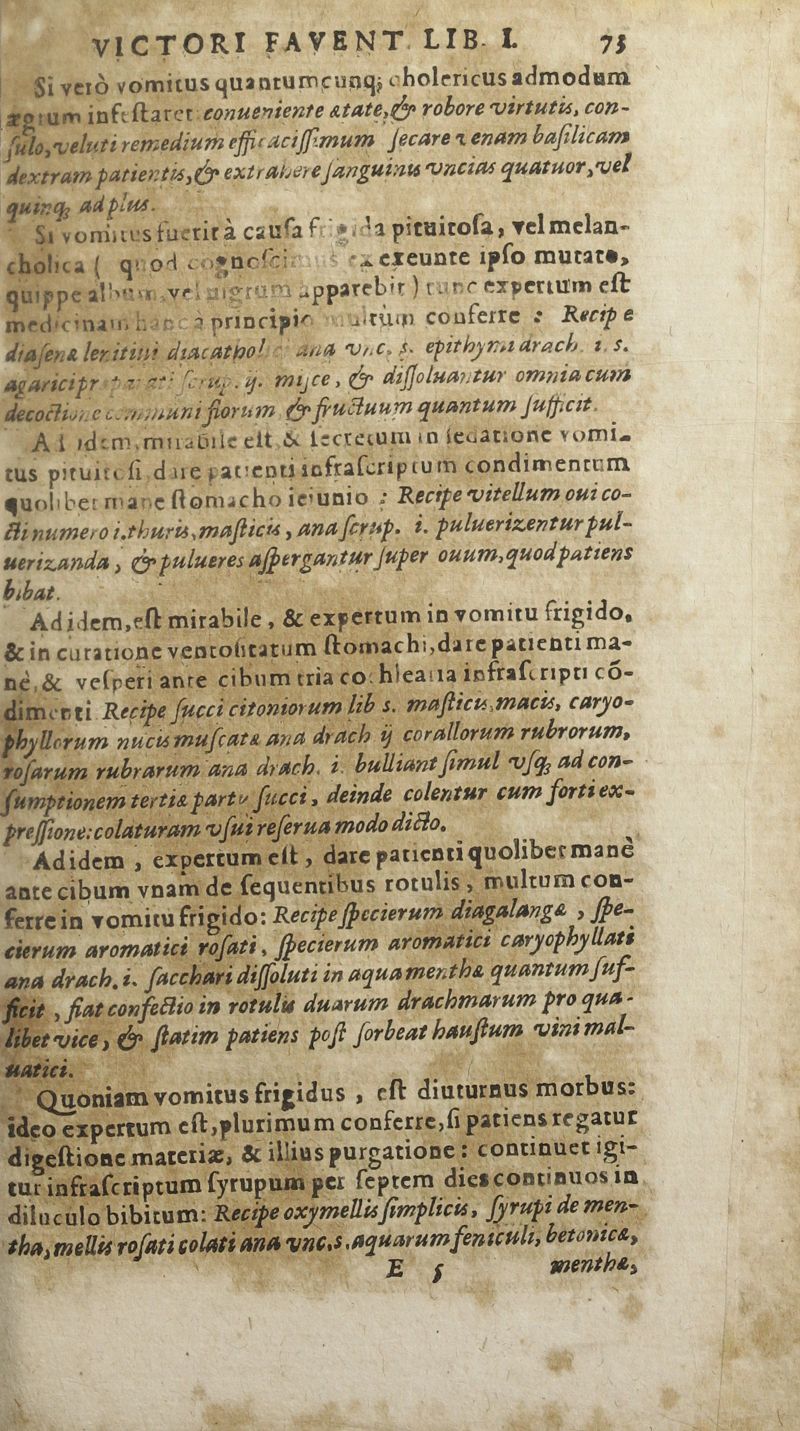 VICTORI FAVENT LIB. I. 75
Si verò vomitus quantumcunq; cholericus admodum
ægrum infestaret conueniente ætate, & robore virtutis, con-
sulo, veluti remedium efficacissimum secare venam basilicam
dextram patientis, & extrahere sanguinis vncias quatuor, vel
quinq; ad plus.
Si vomitus fuerit à causa frigida pituitosa, vel melan-
cholica ( quod ex exeunte ipso mutato,
quippe album, vel nigrum apparebit ) tunc expertum est
medicinam hanc à principio conferre : Recipe
diasenæ lenitiui diacathol ana vnc. s. epithymi drach. 1. s.
agarici scrup. ij. misce, & dissoluantur omnia cum
decoctione communi florum & fructuum quantum sufficit.
Ad idem, mirabile est & secretum in sedatione vomi-
tus pituitosi dare patienti infrascriptum condimentum
quolibet mane stomacho ieiunio : Recipe vitellum oui co-
cti numero i. thuris, masticis, ana scrup. i. puluerizentur pul-
uerizanda, & pulueres aspergantur super ouum, quod patiens
bibat.
Ad idem, est mirabile, & expertum in vomitu frigido,
& in curatione ventositatum stomachi, dare patienti ma-
nè, & vesperi ante cibum tria cochlearia infrascripti cō-
dimenti Recipe succi citoniorum lib s. masticis, macis, caryo-
phyllorum nucis muscatæ ana drach ij corallorum rubrorum,
rosarum rubrarum ana drach. i. bulliant simul vsq; ad con-
sumptionem tertiæ partis succi, deinde colentur cum forti ex-
pressione: colaturam vsui reserua modo dicto.
Ad idem, expertum est, dare patienti quolibet manè
ante cibum vnam de sequentibus rotulis, multum con-
ferre in vomitu frigido: Recipe specierum diagalangæ, spe-
cierum aromatici rosati, specierum aromatici caryophyllati
ana drach. i. sacchari dissoluti in aqua menthæ quantum suf-
ficit, fiat confectio in rotulis duarum drachmarum pro qua-
libet vice, & statim patiens post sorbeat haustum vini mal-
uatici.
Quoniam vomitus frigidus, est diuturnus morbus:
ideo expertum est, plurimum conferre, si patiens regatur
digestione materiæ, & illius purgatione: continuet igi-
tur infrascriptum syrupum per septem dies continuos in
diluculo bibitum: Recipe oxymellis simplicis, syrupi de men-
tha, mellis rosati colati ana vnc. s. aquarum feniculi, betonicæ,
E 5 menthæ,